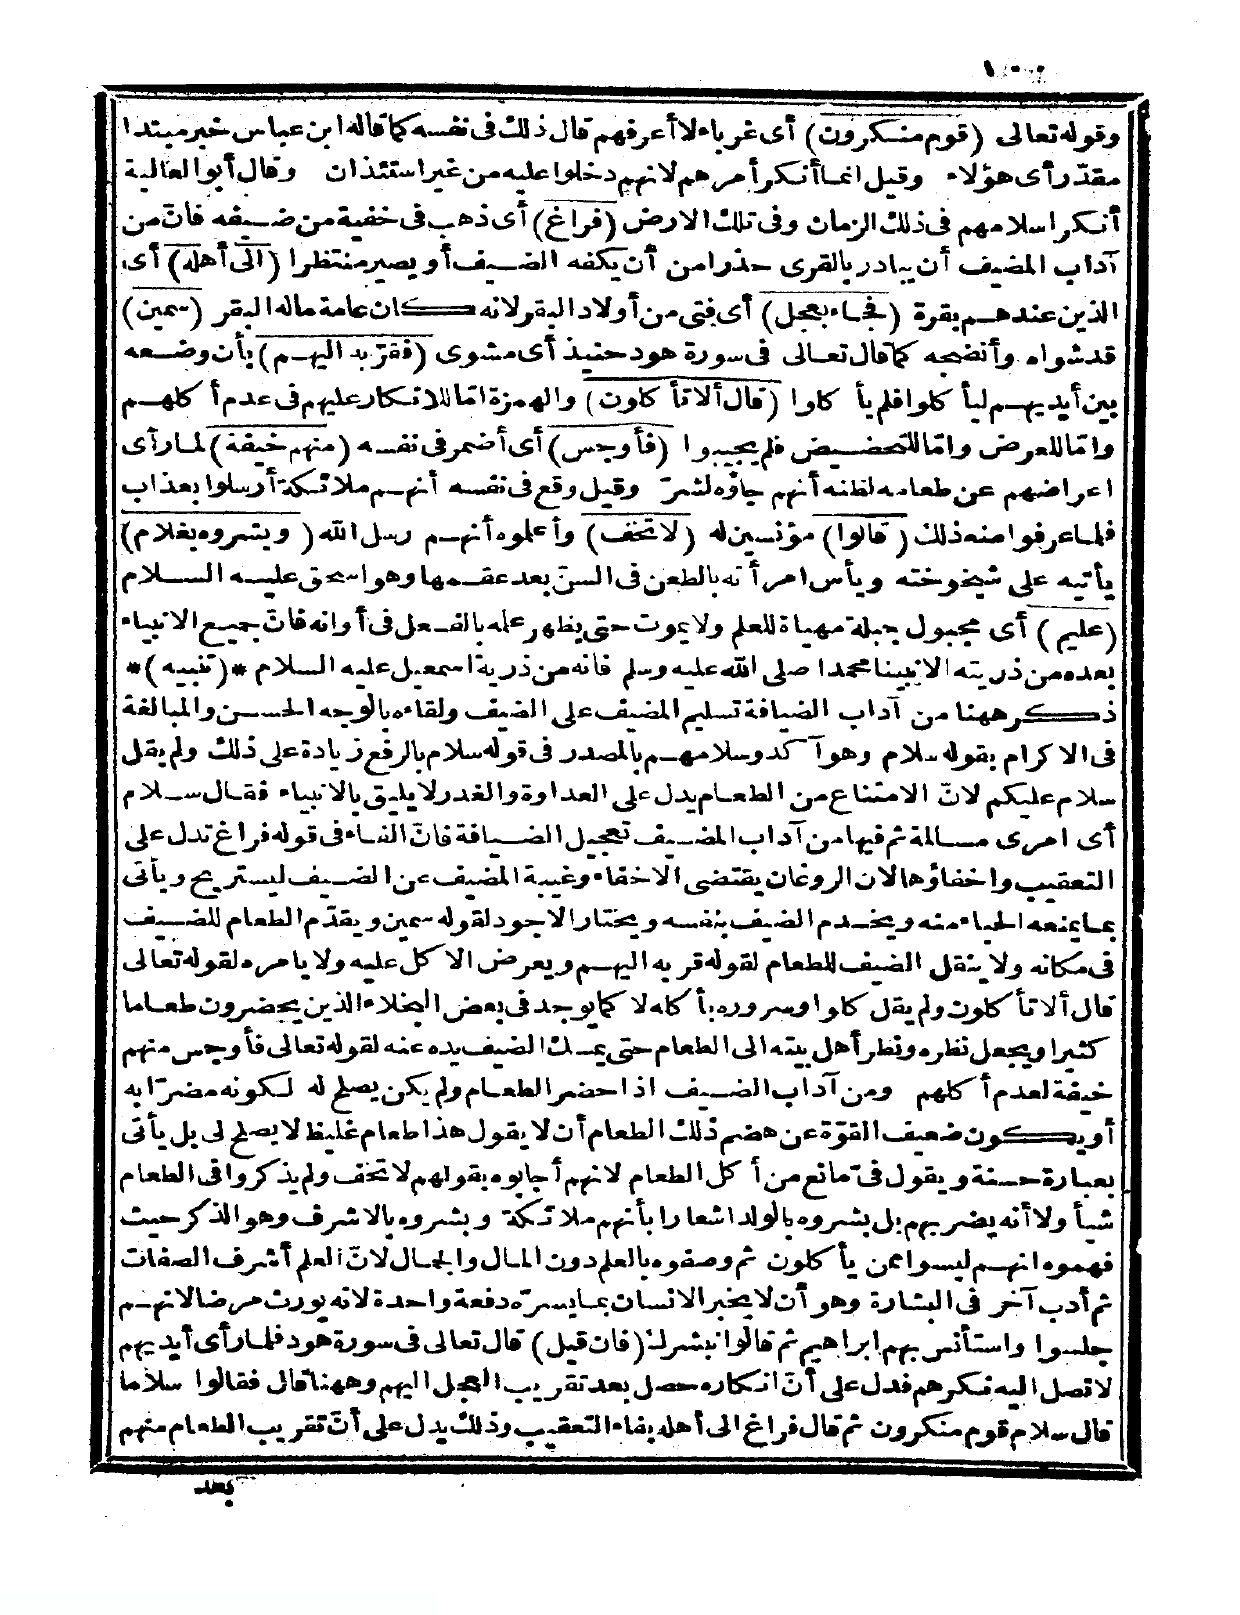 ١٠٠
وقوله تعالى (قوم منكرون) أى غرباء لا أعرفهم قال ذلك فى نفسه كما قاله ابن عباس خبر مبتدا
مقدّر أى هؤلاء وقيل انما أنكر أمرهم لانهم دخلوا عليه من غير استئذان وقال أبو العالية
أنكر اسلامهم فى ذلك الزمان وفى تلك الارض (فراغ) أى ذهب فى خفية من ضيفه فانّ من
آداب المضيف أن يبادر بالقرى حذرا من أن يكفه الضيف أو يصير منتظرا (الى أهله) أى
الذين عندهم بقرة (فجاء بعجل) أى فتى من أولاد البقر لانه كان عامة ماله البقر (سمين)
قد شواه وأنضجه كما قال تعالى فى سورة هود حنيذ أى مشوى (فقرّبه اليهم) بأن وضعه
بين أيديهم ليأكلوا فلم يأكلوا (قال ألا تأكلون) والهمزة امّا للانكار عليهم فى عدم أكلهم
وامّا للعرض وامّا للتحضيض فلم يجيبوا (فأوجس) أى أضمر فى نفسه (منهم خيفة) لما رأى
اعراضهم عن طعامه لظنه أنهم جاؤه لشرّ وقيل وقع فى نفسه أنهم ملائكة أرسلوا بعذاب
فلما عرفوا منه ذلك (قالوا) مؤنسين له (لا تخف) وأعلموه أنهم رسل الله (وبشروه بغلام)
يأتيه على شيخوخته ويأس امرأته بالطعن فى السنّ بعد عقمها وهو اسحق عليه السلام
(عليم) أى مجبول جبلة مهيأة للعلم ولا يموت حتى يظهر علمه بالفعل فى أوانه فانّ جميع الانبياء
بعده من ذريته الا نبينا محمدا صلى الله عليه وسلم فانه من ذرية اسمعيل عليه السلام *(تنبيه)*
ذكر ههنا من آداب الضيافة تسليم المضيف على الضيف ولقاءه بالوجه الحسن والمبالغة
فى الاكرام بقوله سلام وهو آكد وسلامهم بالمصدر فى قوله سلام بالرفع زيادة على ذلك ولم يقل
سلام عليكم لانّ الامتناع من الطعام يدل على العداوة والغدر لا يليق بالانبياء فقال سلام
أى امرى مسالمة ثم فيها من آداب المضيف تعجيل الضيافة فانّ الفاء فى قوله فراغ تدل على
التعقيب واخفاؤها لان الروغان يقتضى الاخفاء وغيبة المضيف عن الضيف ليستريح ويأتى
بما يمنعه الحياء منه ويخدم الضيف بنفسه ويختار الاجود لقوله سمين ويقدّم الطعام للضيف
فى مكانه ولا ينقل الضيف للطعام لقوله قربه اليهم ويعرض الاكل عليه ولا يامره لقوله تعالى
قال ألا تأكلون ولم يقل كلوا وسروره بأكله لا كما يوجد فى بعض البخلاء الذين يحضرون طعاما
كثيرا ويجعل نظره ونظر أهل بيته الى الطعام حتى يمسك الضيف يده عنه لقوله تعالى فأوجس منهم
خيفة لعدم أكلهم ومن آداب الضيف اذا حضر الطعام ولم يكن يصلح له لكونه مضرّا به
أو يكون ضعيف القوّة عن هضم ذلك الطعام أن لا يقول هذا طعام غليظ لا يصلح لى بل يأتى
بعبارة حسنة ويقول فىّ مانع من أكل الطعام لانهم أجابوه بقولهم لا تخف ولم يذكروا فى الطعام
شيأ ولا أنه يضر بهم بل بشروه بالولد اشعارا بأنهم ملائكة وبشروه بالاشرف وهو الذكر حيث
فهموه انهم ليسوا ممن يأكلون ثم وصفوه بالعلم دون المال والجمال لانّ العلم أشرف الصفات
ثم أدب آخر فى البشارة وهو أن لا يخبر الانسان بما يسرّه دفعة واحدة لانه يورث مرضا لانهم
جلسوا واستأنس بهم ابراهيم ثم قالوا نبشرك (فان قيل) قال تعالى فى سورة هود فلما رأى أيديهم
لا تصل اليه نكرهم فدل على أنّ انكاره حصل بعد تقريب العجل اليهم وههنا قال فقالوا سلاما
قال سلام قوم منكرون ثم قال فراغ الى أهله بفاء التعقيب وذلك يدل على أنّ تقريب الطعام منهم
بعد